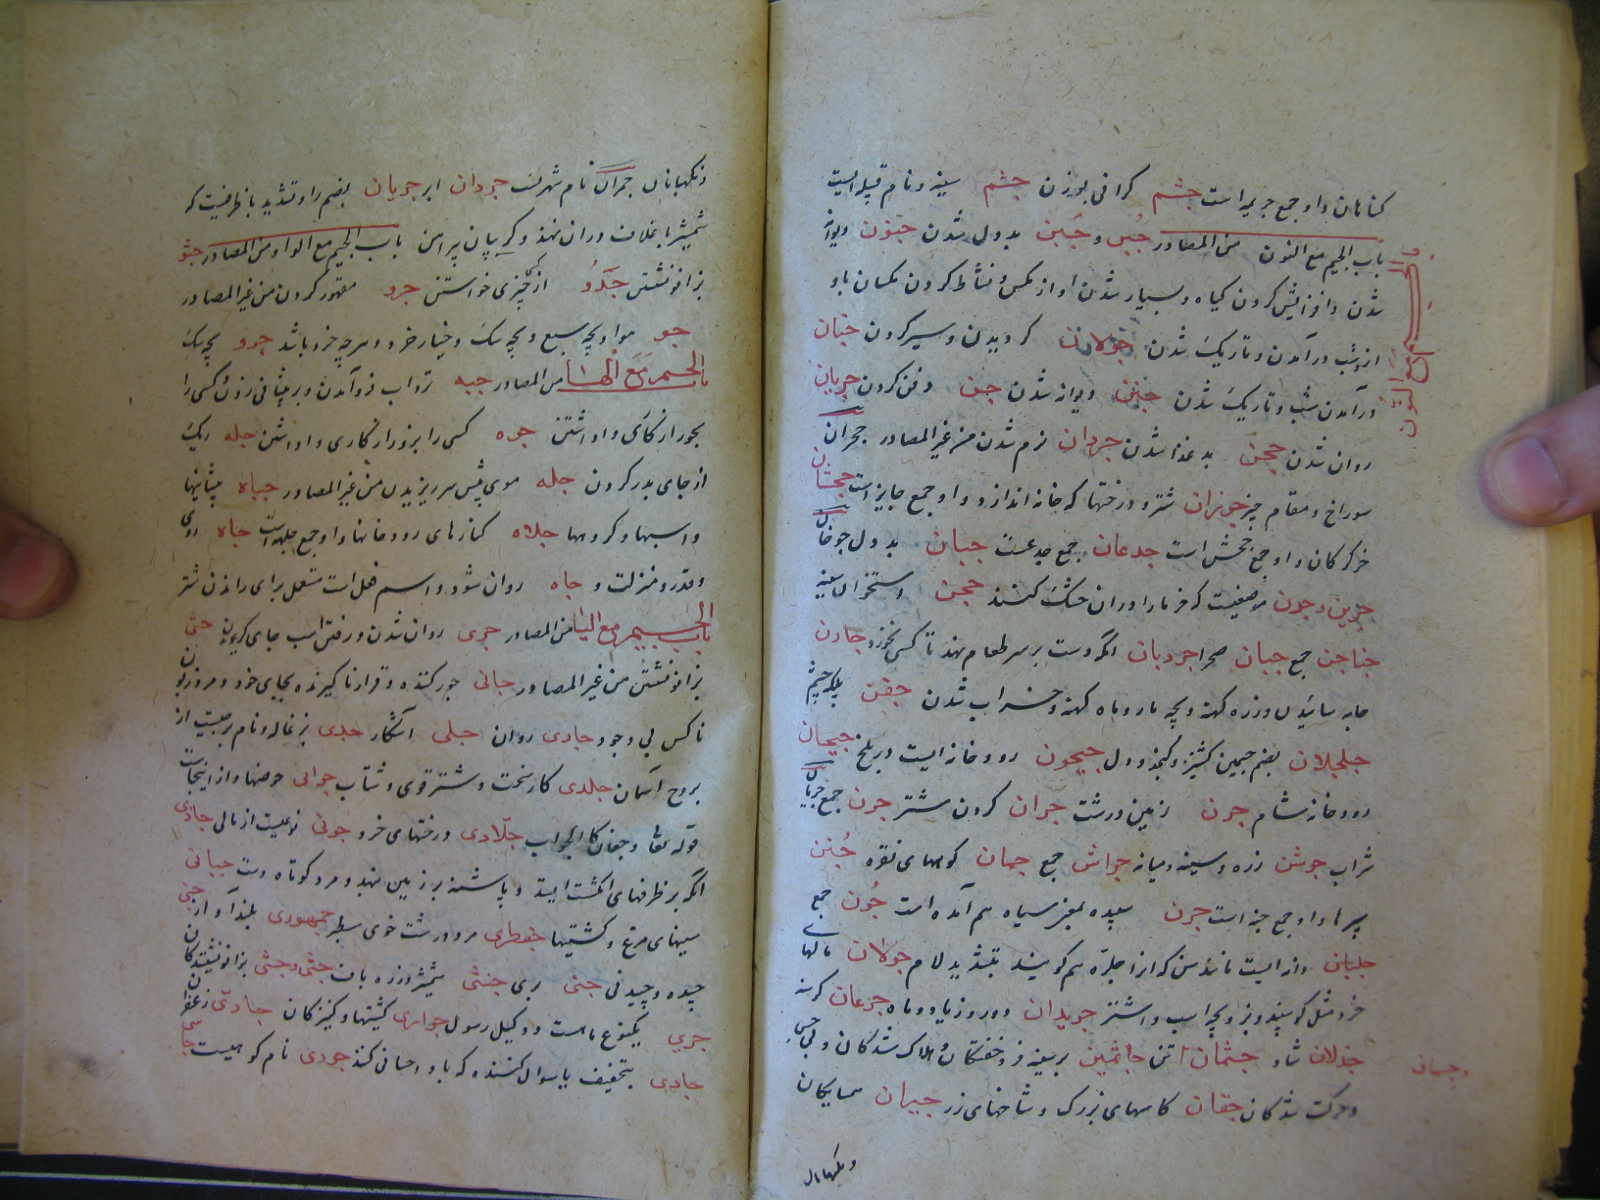 کناهان و او جمع جریمه است جشم کرانی بوزن جشم سینه و نام قبیله ایست
باب الجیم مع النون من المصادر جبن و جُبُن بد دل شدن جنون دیوانه
شدن و افزایش کردن کیاه و بسیار شدن آواز مکس و نشاط کردن مکسان باو
از و شب در آمدن و تاریک شدن جولان کردیدن و سیر کردن جنان
در آمدن شب و تاریک شدن جنن دیوانه شدن جن دفن کردن جریان
روان شدن جحن بد غذا شدن جردان نرم شدن من غیر المصادر جحران
سوراخ و مقام چیز جوزان شتر و درختها که خانه اندازد و او جمع جایز است جحشان
خر کرکان و او جمع جحش است جدعان جمع جدعست جبان بد دل جوخان
جرین و جرن موضعیست که خرما را در ان خشک کنند جحن و ستخوان سینه
جناجن جمع جبان صحرا جردبان انکه دست بر سر طعام نهد تا کسی نخورد جادن
جامه سائیدن و زره کهنه و بچه مار و ماه کهنه و خراب شدن جفن پلک چشم
جلجلان بضم جیمین کشنیز و کنجد و دل جیحون رودخانه ایست در بلخ جیحان
رودخانه شام جرن زمین درشت جران کردن شتر جرن جمع جریال
شراب جوشن زره و سینه و میانه جواشن جمع جمان کوههای نقره جُنن
سپرها و او جمع جنه است جون سپیده بمغز سیاه هم آمده است جُون جمع
جلبان دانه ایست مانند من که انرا جلبره هم کویند بتشدید لام جولان مالهای
خرد مثل کوسپند و بز و بچه اسب و اشتر جریدان دو روز یا دو ماه جرعان کرسنه
جذلان شاد جثمان تن جاثمین بر سینه فرو خفتکان و هلاک شدکان و بی حس
و حرکت شدکان جفان کاسهای بزرک و شاخهای زر جیران همسایکان
و جسمان
و نکهبانان
باب الجیم مع النون
و نکهبانان جمران نام شهریست جردان ابر جربان بضم را و تشدید با ظرفیست که
شمشیر با غلاف در ان نهند و کریبان پیراهن باب الجیم مع الواو من المصادر جثو
بزانو نشستن جَدْو از کسی چیزی خواستن جرو مقهور کردن من غیر المصادر
جو هوا و بچه سبع و بچه سک و خیار خرد و هر چه خرد باشد جرو بچه سک
باب الجیم مع الها من المصادر جبه تر و آب فرو آمدن و بر پیشانی زدن و کسی را
بجور از کاری واداشتن جوه کسی را بزور از کاری واداشتن جله ریک
از جای بدر کردن جله موی پیش سر ریزیدن من غیر المصادر جباه پیشانیها
و اسبها و کروهها جلاه کنارهای رودخانها و او جمع جلهه است جاه روی
و قدر و منزلت و جاه روان شود و اسم فعل است مستعمل برای راندن شتر
باب الجیم مع الیا من المصادر جری روان شدن و رفتن اسب جای کریبان جثی
بزانو نشستن من غیر المصادر جانی جور کننده و قرار ناکیرنده بجای خود و مرد زبون
ناکس بی وجود جادی روان جلی آشکار جدی بزغاله و نام برجیست از
بروج آسمان جلدی کار سخت و شتر قوی و شتاب جوابی حوضها و از اینجاست
قوله تعالی و جفان کالجواب جلّادی درختهای خرد جونی نوعیست از مالی جاذی
انکه بر طرفهای انکشت ایستد و پاشنه بر زمین نهد و مرد کوتاه دست جبانی
سینهای مرغ و کشتیها جعظری مرد درشت خوی سطبر جمهوری بلند آواز جنی
چیده و چیدنی جنی بری جنثی شمشیر و زره باف جثی و جثی بزانو نشستکان
جری یکنوع ماهست و وکیل رسول جواری کشتیها و کنیزکان جادی زعفران
جادی بتخفیف یا سوال کننده که باو احسانی کند جودی نام کوهیست